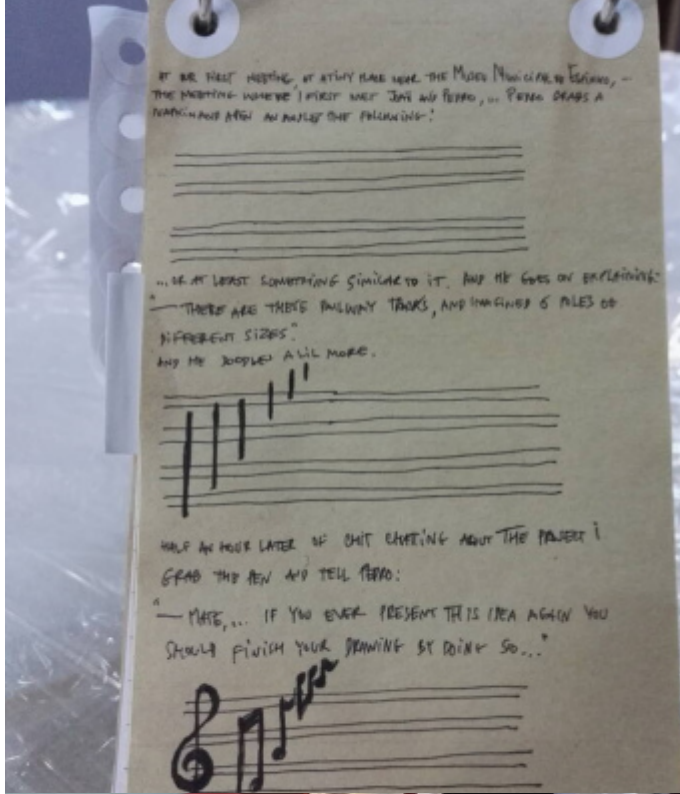 AT OUR FIRST MEETING, AT A TINY PLACE NEAR THE MUSEU MUNICIPAL DE ESPINHO, —
THE MEETING WHERE I FIRST MET JOÃO AND PEDRO,... PEDRO GRABS A
NAPKIN AND A PEN AND THE FOLLOWING:
...OR AT LEAST SOMETHING SIMILAR TO IT. AND HE GOES ON EXPLAINING:
"— THERE ARE THESE RAILWAY TRACKS, AND IMAGINED 6 POLES OF
DIFFERENT SIZES."
AND HE DOODLED A LIL MORE.
HALF AN HOUR LATER OF CHIT CHATTING ABOUT THE PROJECT I
GRAB THE PEN AND TELL PEDRO:
"— MATE,... IF YOU EVER PRESENT THIS IDEA AGAIN YOU
SHOULD FINISH YOUR DRAWING BY DOING SO..."